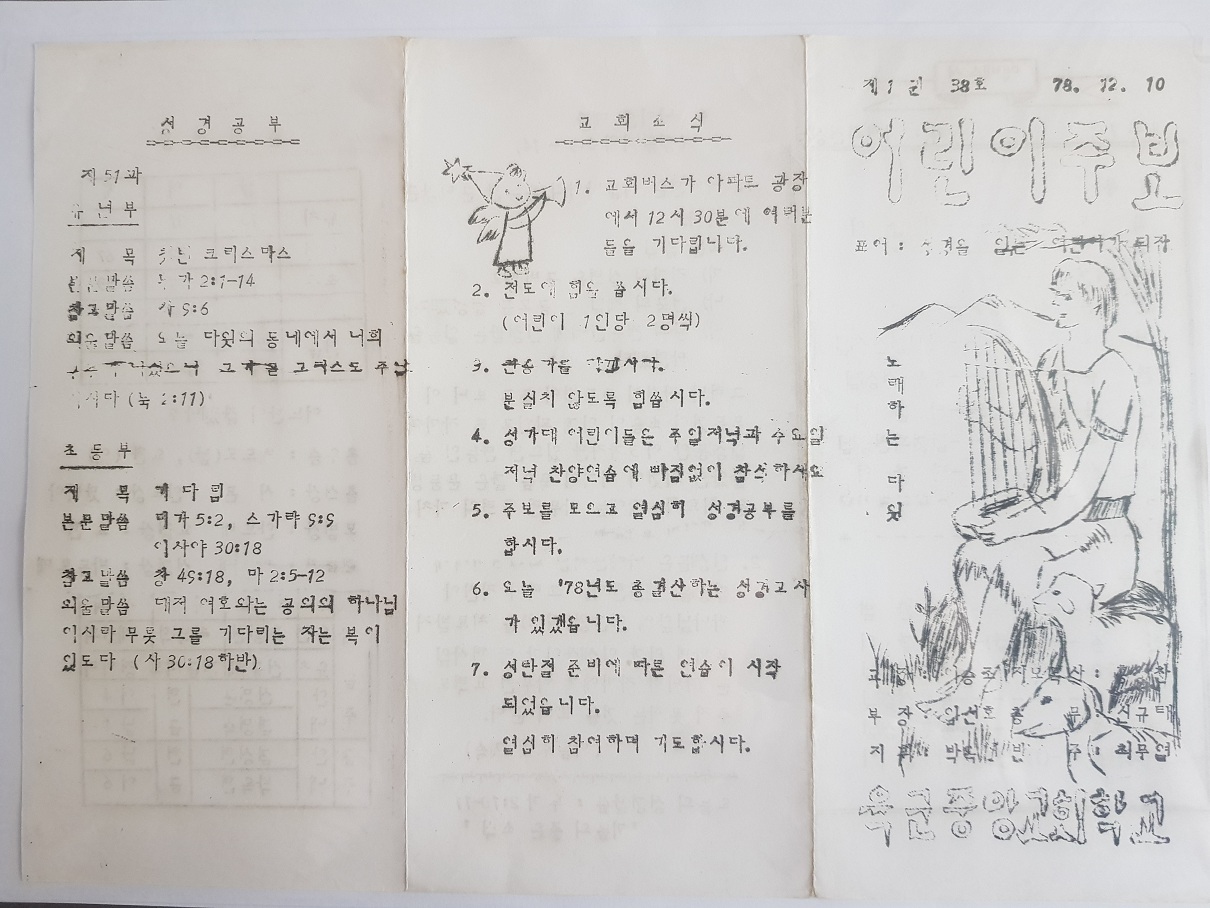 성경공부
제 51과
유년부
제 목 첫번 크리스마스
본문말씀 눅가 2:1-14
참고말씀 사 9:6
외울말씀 오늘 다윗의 동네에서 너희
그가 곧 그리스도 주님
이시다 (눅 2:11)
초등부
제 목 기다림
본문말씀 미가 5:2, 스가랴 9:9
이사야 30:18
참고말씀 창 49:18, 마 2:5-12
외울말씀 대저 여호와는 공의의 하나님
이시라 무릇 그를 기다리는 자는 복이
있도다 (사 30:18하반)
교회소식
1. 교회버스가 아파트 광장
에서 12시 30분에 여러분
들을 기다립니다.
2. 전도에 힘을 씁시다.
(어린이 1인당 2명씩)
3. 찬송가를
분실치 않도록 힘씁시다.
4. 성가대 어린이들은 주일저녁과 수요일
저녁 찬양연습에 빠짐없이 참석하세요
5. 주보를 모으고 열심히 성경공부를
합시다.
6. 오늘 '78년도 총결산하는 성경고사
가 있겠읍니다.
7. 성탄절 준비에 따른 연습이 시작
되었읍니다.
열심히 참여하며 기도합시다.
제1권 38호 78. 12. 10
어린이주보
표어: 성경을 읽는 어린이가 되자
노래하는 다윗
부 장: 임선호 총 무: 신규태
지 휘: 반 주: 최무열
목근중앙교회학교